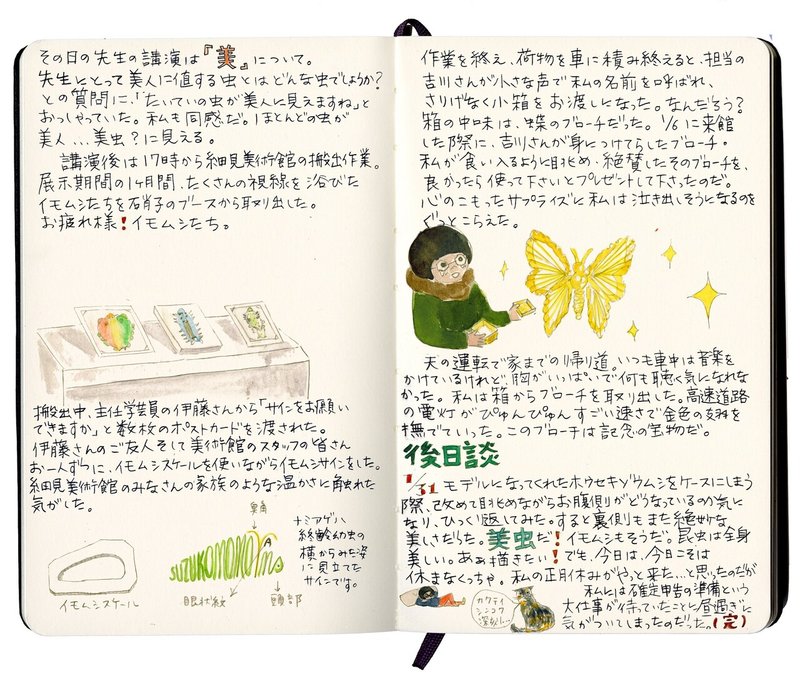 その日の先生の講演は『美』について。
先生にとって美人に値する虫とはどんな虫でしょうか?
との質問に、「たいていの虫が美人に見えますね」と
おっしゃていた。私も同感だ。ほとんどの虫が
美人...美虫?に見える。
講演後は17時から細見美術館の搬出作業。
展示期間の1ヶ月間、たくさんの視線を浴びた
イモムシたちを硝子のブースから取り出した。
お疲れ様!イモムシたち。
搬出中、主任学芸員の伊藤さんから「サインをお願い
できますか」と数枚のポストカードを渡された。
伊藤さんのご友人そして美術館のスタッフの皆さん
お一人ずつに、イモムシスケールを使いながらイモムシサインをした。
細見美術館のみなさんの家族のような温かさに触れた
気がした。
イモムシスケール
臭角
SUZUKOMOMOYO
眼状紋
頭部
ナミアゲハ
終齢幼虫の
横からみた姿
に見立てた
サインです。
作業を終え、荷物を車に積み終えると、担当の
吉川さんが小さな声で私の名前を呼ばれ、
さりげなく小箱をお渡しになった。なんだろう?
箱の中味は、蝶のブローチだった。1/6に来館
した際に、吉川さんが身につけてらしたブローチ・
私が食い入るように眺め・絶賛したそのブローチを、
良かったら使って下さいとプレゼントして下さったのだ。
心のこもったサプライズに私は泣き出しそうになるのを
ぐっとこらえた。
夫の運転で家までの帰り道。いつも車中は音楽を
かけているけれど、胸がいっぱいで何も聴く気になれな
かった。私は箱からブローチを取り出した。高速道路
の電灯がぴゅんぴゅんすごい速さで金色の翅を
撫でていった。このブローチは記念の宝物だ。
後日談
1/31 モデルになってくれたホウセキゾウムシをケースにしまう
際、改めて眺めながらお腹側がどうなっているのか気に
なり、ひっくり返してみた。すると裏側もまた絶妙な
美しさだった。美虫だ!イモムシもそうだ。昆虫は全身
美しい。あぁ描きたい!でも、今日は、今日こそは
休まなくっちゃ。私の正月休みがやっと来た...と思ったのだが
私には確定申告の準備という
大仕事が待っていたことに昼過ぎに
気がついてしまったのだった。(完)
カクテイ
シンコク
深刻...